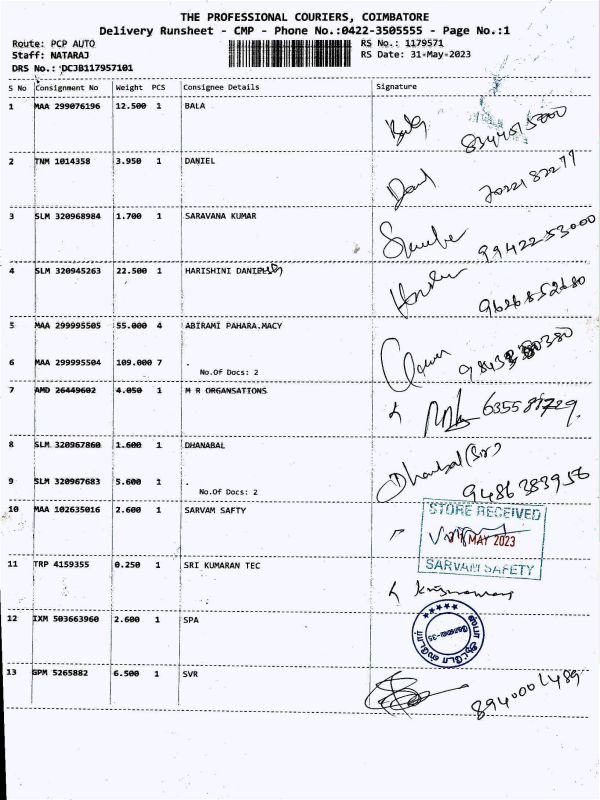 THE PROFESSIONAL COURIERS, COIMBATORE
Delivery Runsheet - CMP - Phone No.:0422-3505555 - Page No.:1
Route: PCP AUTO RS No.: 1179571
Staff: NATARAJ RS Date: 31-May-2023
DRS No.: DCJB117957101
S No Consignment No Weight PCS Consignee Details Signature
1 MAA 299076196 12.500 1 BALA
2 TNM 1014358 3.950 1 DANIEL
7022182277
3 SLM 320968984 1.700 1 SARAVANA KUMAR
9942253000
4 SLM 320945263 22.500 1 HARISHINI DANIEL
9626852680
5 MAA 299995505 55.000 4 ABIRAMI PAHARA.MACY
6 MAA 299995504 109.000 7 .
No.Of Docs: 2
7 AMD 26449602 4.050 1 M R ORGANSATIONS
8 SLM 320967860 1.600 1 DHANABAL
Dhanabal (Sir)
9 SLM 320967683 5.600 1 .
No.Of Docs: 2
9486383956
10 MAA 102635016 2.600 1 SARVAM SAFTY
STORE RECEIVED
MAY 2023
SARVAM SAFETY
11 TRP 4159355 0.250 1 SRI KUMARAN TEC
12 IXM 503663960 2.600 1 SPA
13 GPM 5265882 6.500 1 SVR
8940001489